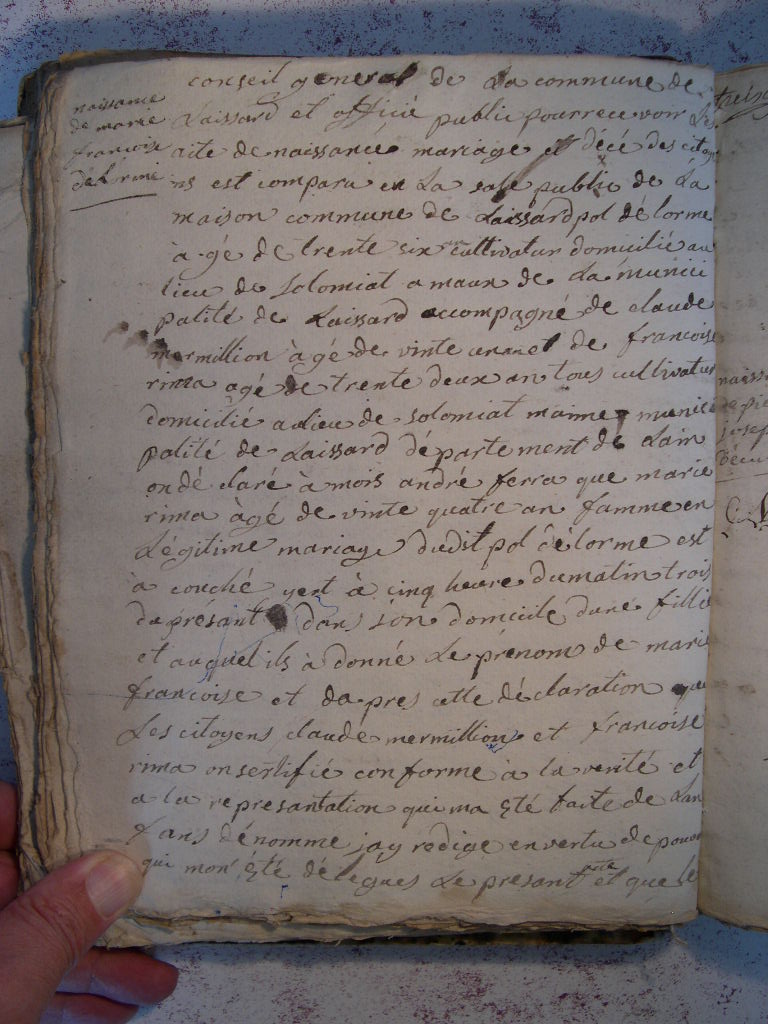 naissance
de marie
francoise
delorme
conseil general de La commune de
Laissard et officié public pour recevoir Les
acte de naissance mariage et décé des citoy
ns est comparu en La sale public de La
maison commune de Laissard pol délorme
à gé de trente six an cultivatur domicilié au
lieu de solomiat a maux de La munici
palité de Laissard accompagné de claude
mermillion àgé de vinte un an et de francoise
rima agé de trente deux an tous cultivatur
domicilié au lieu de solomiat maime munici
palité de Laissard département de Lain
on dé claré à mois andré ferra que marie
rima àgé de vinte quatre an famme en
Légitime mariage dudit pol délorme est
à couché yert à cinq heure du matin trois
du présant dans son domicile dune fillie
et auquel ils à donné Le prénom de marie
francoise et dapres cette déclaration que
Les citoyens claude mermillion et francoise
rima on sertifié conforme à la verité et
a la represantation qui ma été faite de Lan
fans dénomme jay redige en vertu de pouvoi
qui mon été délegues Le présant acte et que le
naiss
de pie
josep